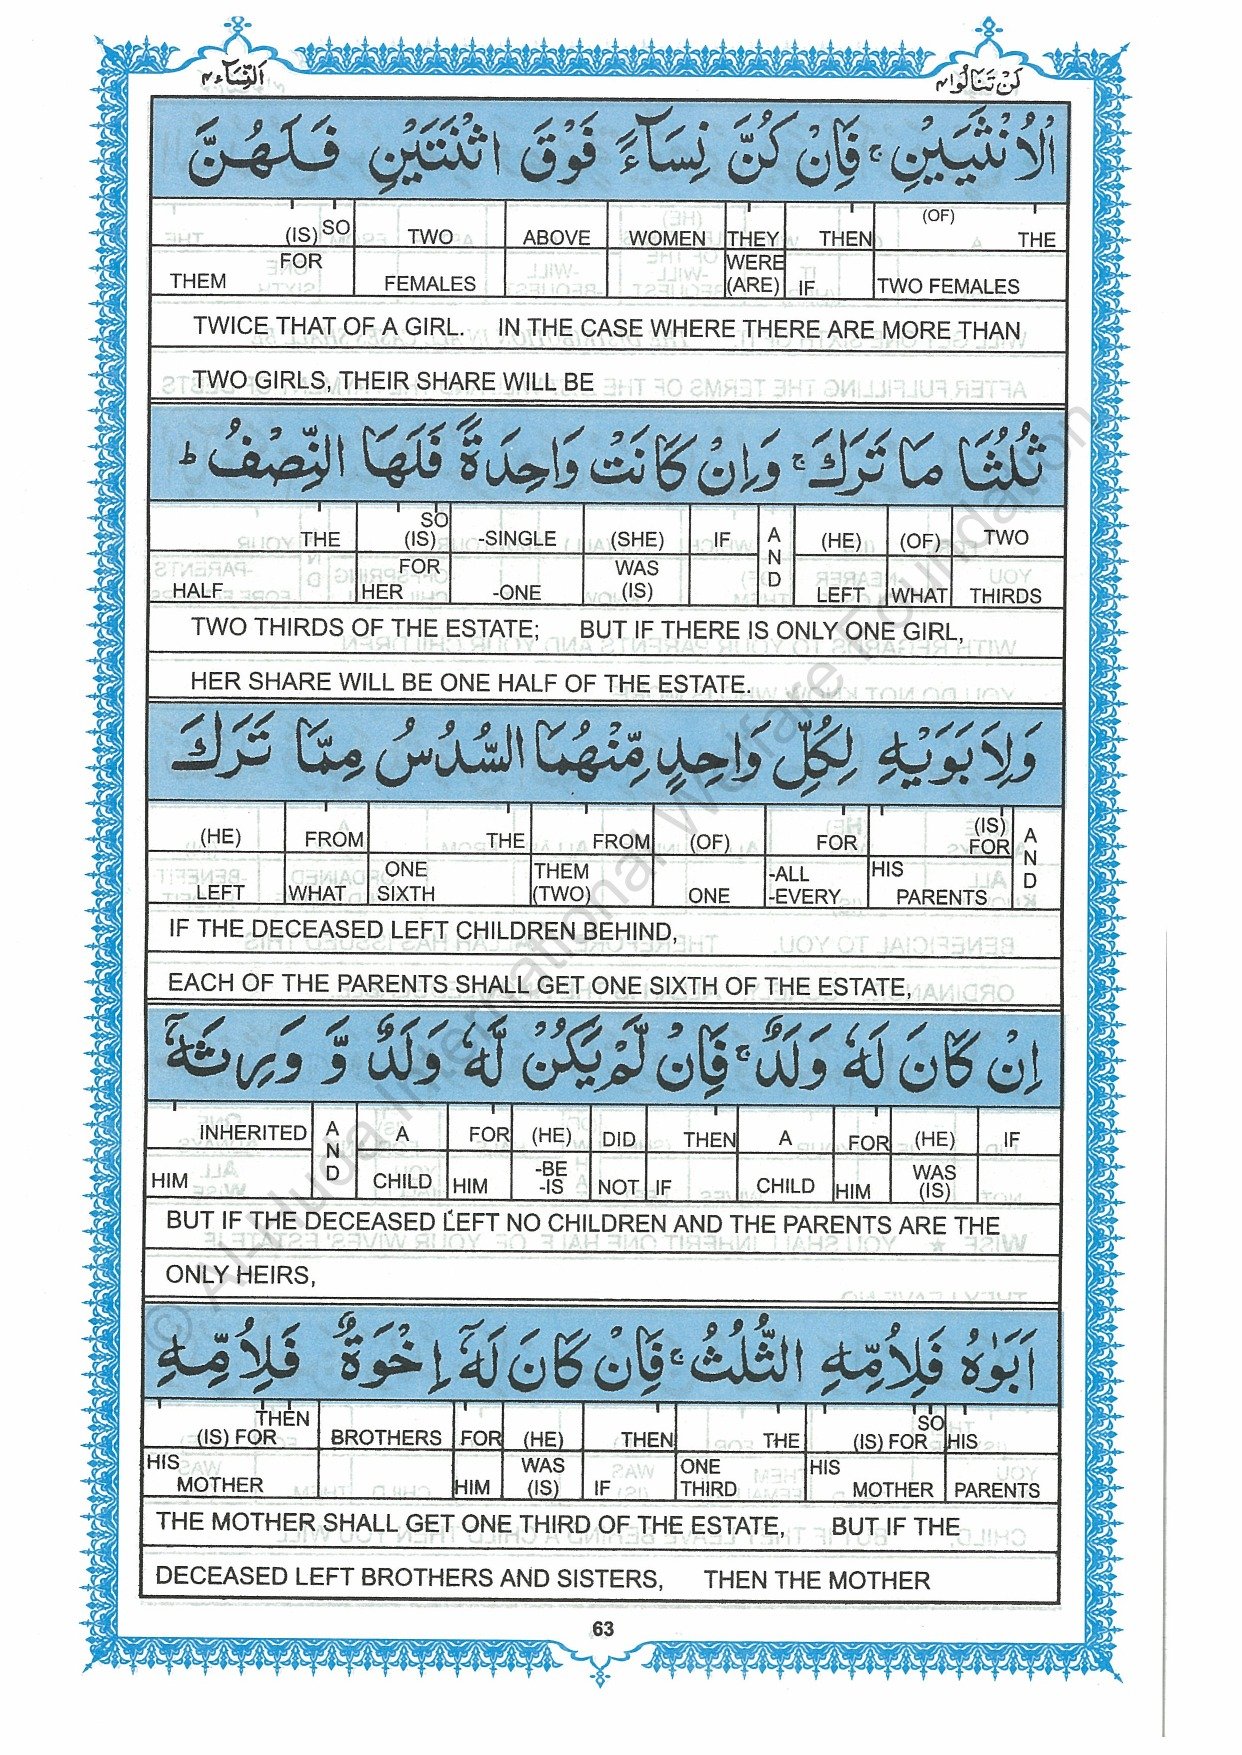 النِّسَآء ٤
لَنْ تَنَالُوا ٤
الْاُنْثَيَيْنِ ۚ فَاِنْ كُنَّ نِسَآءً فَوْقَ اثْنَتَيْنِ فَلَهُنَّ
(IS) SO TWO ABOVE WOMEN THEY THEN (OF) THE
THEM FOR FEMALES WERE (ARE) IF TWO FEMALES
TWICE THAT OF A GIRL. IN THE CASE WHERE THERE ARE MORE THAN
TWO GIRLS, THEIR SHARE WILL BE
ثُلُثَا مَا تَرَكَ ۚ وَاِنْ كَانَتْ وَاحِدَةً فَلَهَا النِّصْفُ ؕ
THE SO (IS) -SINGLE (SHE) IF AND (HE) (OF) TWO
HALF FOR HER -ONE WAS (IS) LEFT WHAT THIRDS
TWO THIRDS OF THE ESTATE; BUT IF THERE IS ONLY ONE GIRL,
HER SHARE WILL BE ONE HALF OF THE ESTATE.
وَلِاَبَوَيْهِ لِكُلِّ وَاحِدٍ مِّنْهُمَا السُّدُسُ مِمَّا تَرَكَ
(HE) FROM THE FROM (OF) FOR (IS) FOR AND
LEFT WHAT ONE SIXTH THEM (TWO) ONE -ALL -EVERY HIS PARENTS
IF THE DECEASED LEFT CHILDREN BEHIND,
EACH OF THE PARENTS SHALL GET ONE SIXTH OF THE ESTATE,
اِنْ كَانَ لَهٗ وَلَدٌ ۚ فَاِنْ لَّمْ يَكُنْ لَّهٗ وَلَدٌ وَّ وَرِثَهٗۤ
INHERITED AND A FOR (HE) DID THEN A FOR (HE) IF
HIM CHILD HIM -BE -IS NOT IF CHILD HIM WAS (IS)
BUT IF THE DECEASED LEFT NO CHILDREN AND THE PARENTS ARE THE
ONLY HEIRS,
اَبَوٰهُ فَلِاُمِّهِ الثُّلُثُ ۚ فَاِنْ كَانَ لَهٗۤ اِخْوَةٌ فَلِاُمِّهِ
THEN (IS) FOR BROTHERS FOR (HE) THEN THE SO (IS) FOR HIS
HIS MOTHER HIM WAS (IS) IF ONE THIRD HIS MOTHER PARENTS
THE MOTHER SHALL GET ONE THIRD OF THE ESTATE, BUT IF THE
DECEASED LEFT BROTHERS AND SISTERS, THEN THE MOTHER
63
© Al-Huda International Welfare Foundation